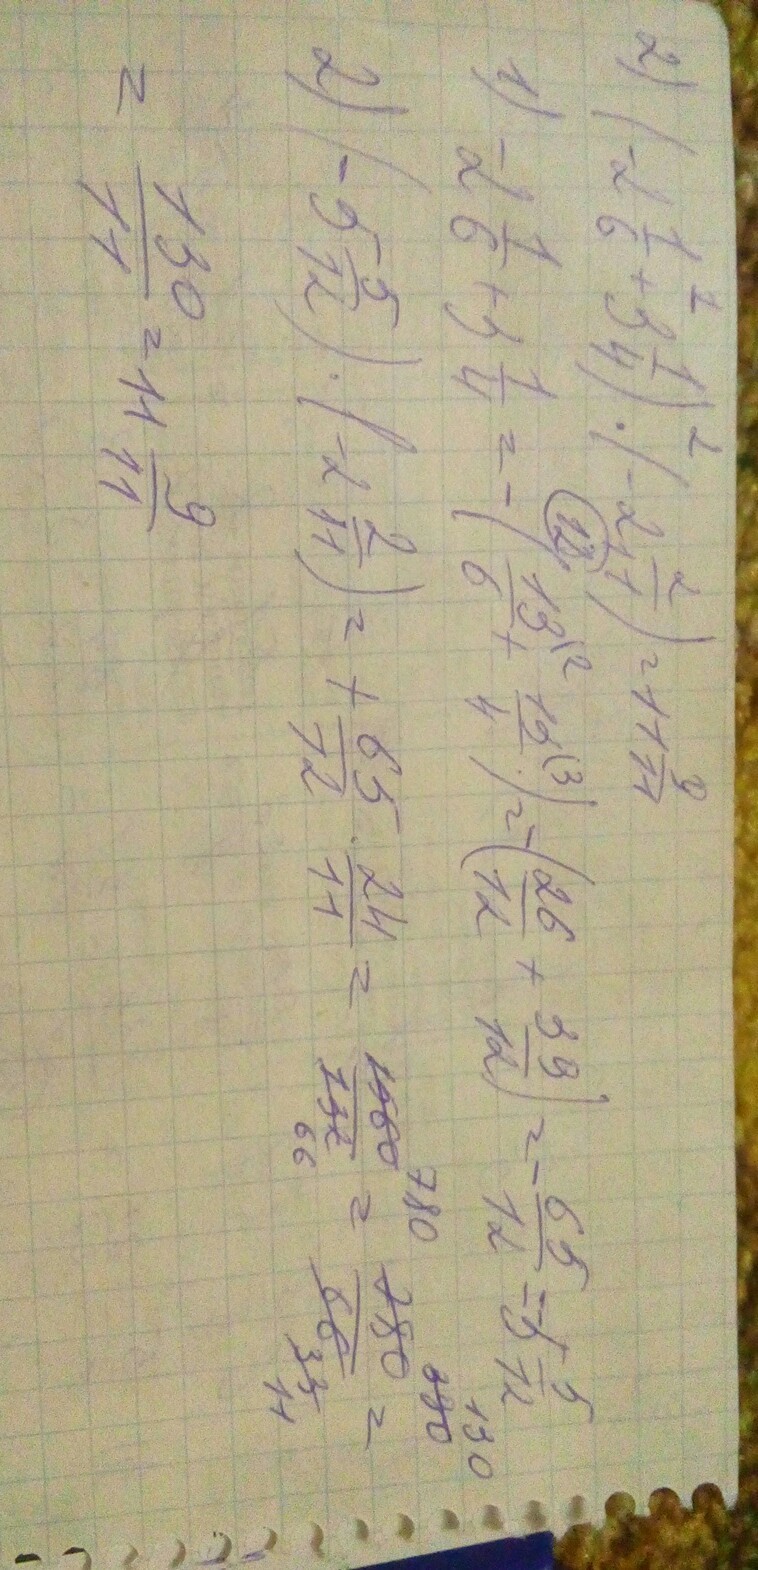 2) (-2 1/6 + 3 1/4) · (-2 2/11) = 11 9/11
1) -2 1/6 + 3 1/4 = -(13/6 + 13/4) = -(26/12 + 39/12) = -65/12 = -5 5/12
12
2) (-5 5/12) · (-2 2/11) = + 65/12 · 24/11 = 1560/132 = 780/66 =
= 130/11 = 11 9/11